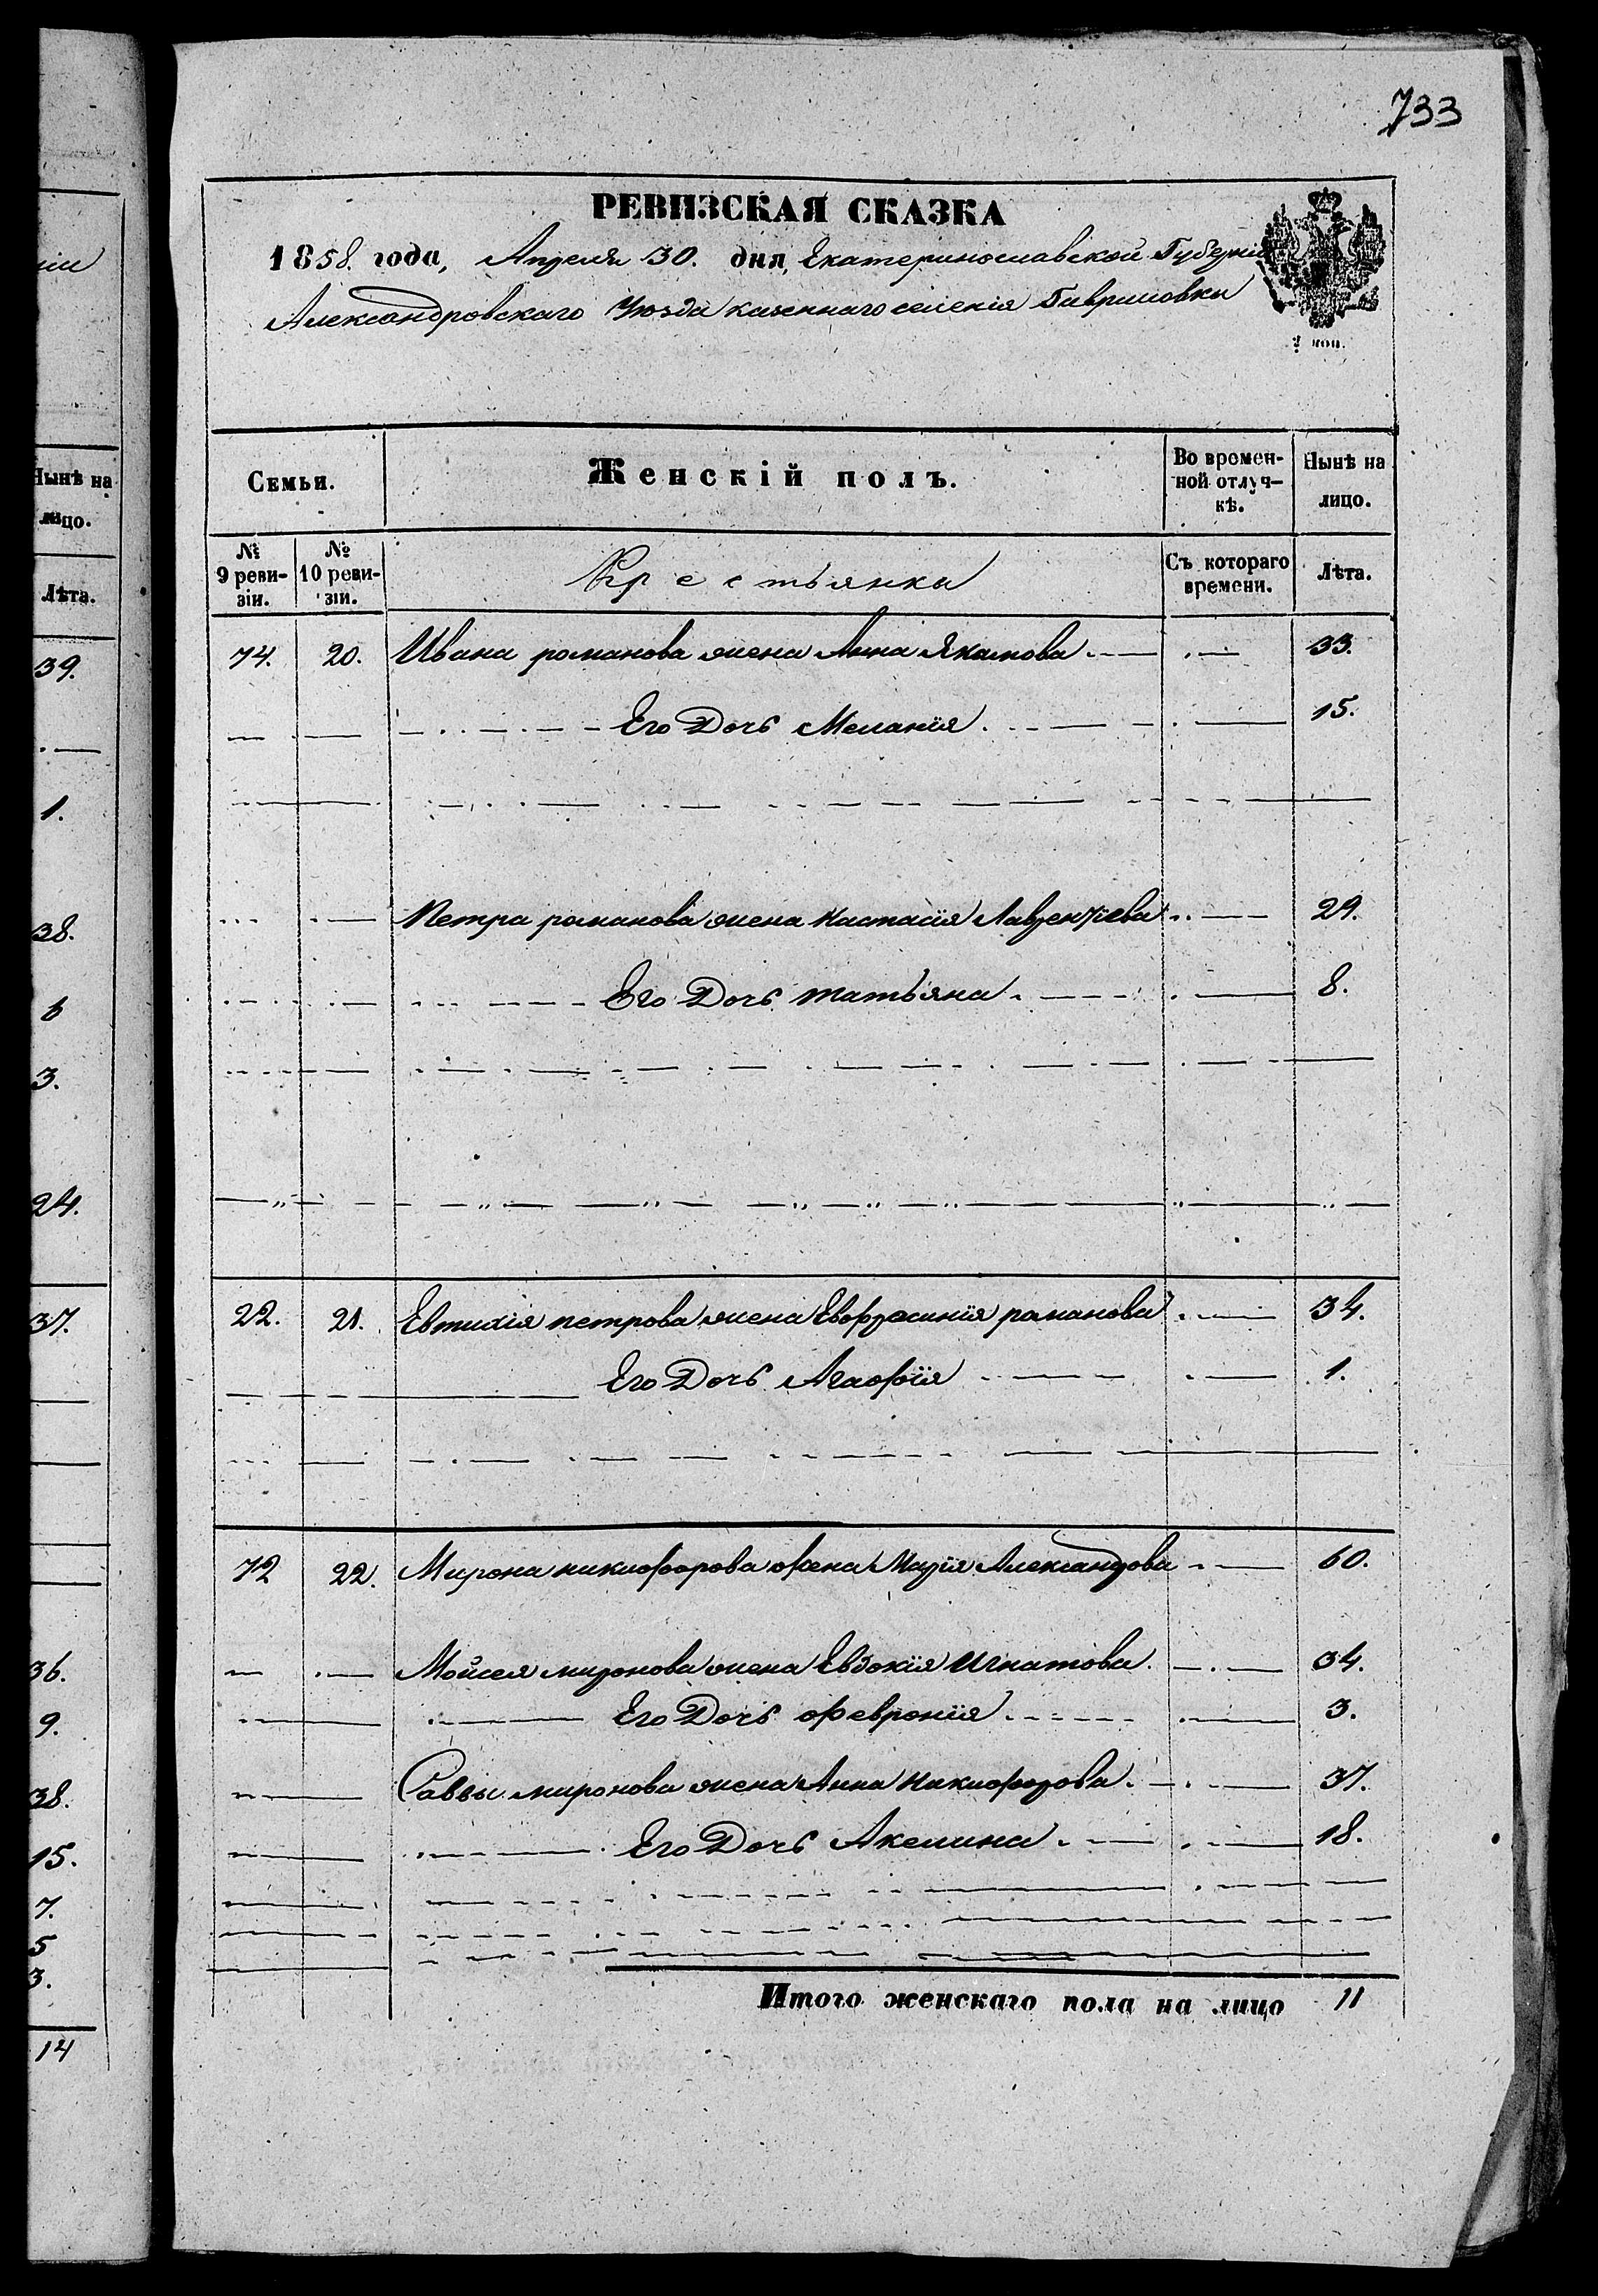 733
РЕВИЗСКАЯ СКАЗКА
1858. года, Апреля 30. дня, Екатеринославской Губерніи
Александровскаго Уезда казеннаго селенія Гавриловки
Семьи.
Женскій полъ.
Во времен-
ной отлуч-
кѣ.
Нынѣ на
лицо.
№
9 реви-
зіи.
№
10 реви-
зіи.
Крестьянки
Съ котораго
времени.
Лѣта.
74. 20. Ивана романова жена Анна Якимова 33.
Его Дочь Меланія 15.
Петра романова жена Настасія Лаврентіева 29.
Его Дочь татьяна 8.
22. 21. Евтихія петрова жена Евфросинія романова 34.
Его Дочь Агафія 1.
72 22. Мирона никифорова жена Марія Александрова 60.
Мойсея миронова жена Евдокія Игнатова 34.
Его Дочь февронія 3.
Саввы миронова жена Анна Никифорова 37.
Его Дочь Акелина 18.
Итого женскаго пола на лицо 11
Нынѣ на
лицо.
Лѣта.
39.
1.
38.
6
3.
24.
37.
36.
9.
38.
15.
7.
5
3.
14